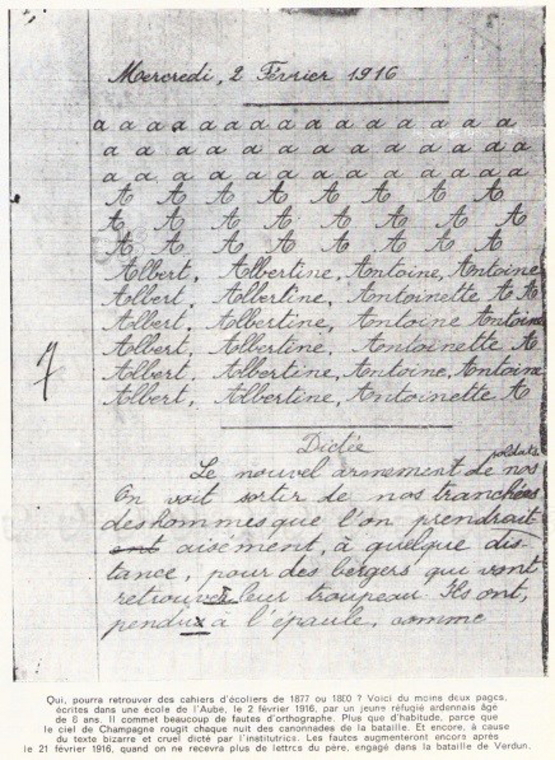 Mercredi, 2 Février 1916
a a a a a a a a a a a a a a a a
a a a a a a a a a a a a a a
a a a a a a a a a a a a a a a
A A A A A A A A
A A A A A A A A
A A A A A A A A
Albert, Albertine, Antoine, Antoine
Albert, Albertine, Antoinette A A
Albert, Albertine, Antoine Antoine
Albert, Albertine, Antoinette A
Albert, Albertine, Antoine, Antoine
Albert, Albertine, Antoinette A
7
Dictée
Le nouvel armement de nos soldats.
On voit sortir de nos tranchées
des hommes que l'on prendrait
ent aisément, à quelque dis-
tance, pour des bergers qui vont
retrouver leur troupeau. Ils ont,
pendu à l'épaule, comme
Qui, pourra retrouver des cahiers d'écoliers de 1877 ou 1800 ? Voici du moins deux pages,
écrites dans une école de l'Aube, le 2 février 1916, par un jeune réfugié ardennais âgé
de 8 ans. Il commet beaucoup de fautes d'orthographe. Plus que d'habitude, parce que
le ciel de Champagne rougit chaque nuit des canonnades de la bataille. Et encore, à cause
du texte bizarre et cruel dicté par l'institutrice. Les fautes augmenteront encore après
le 21 février 1916, quand on ne recevra plus de lettres du père, engagé dans la bataille de Verdun.